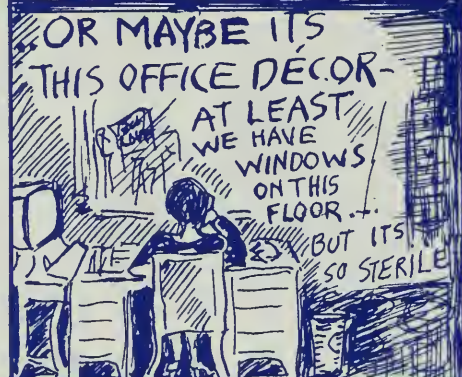 OR MAYBE ITS
THIS OFFICE DÉCOR-
AT LEAST
WE HAVE
WINDOWS
ON THIS
FLOOR...
BUT ITS
SO STERILE